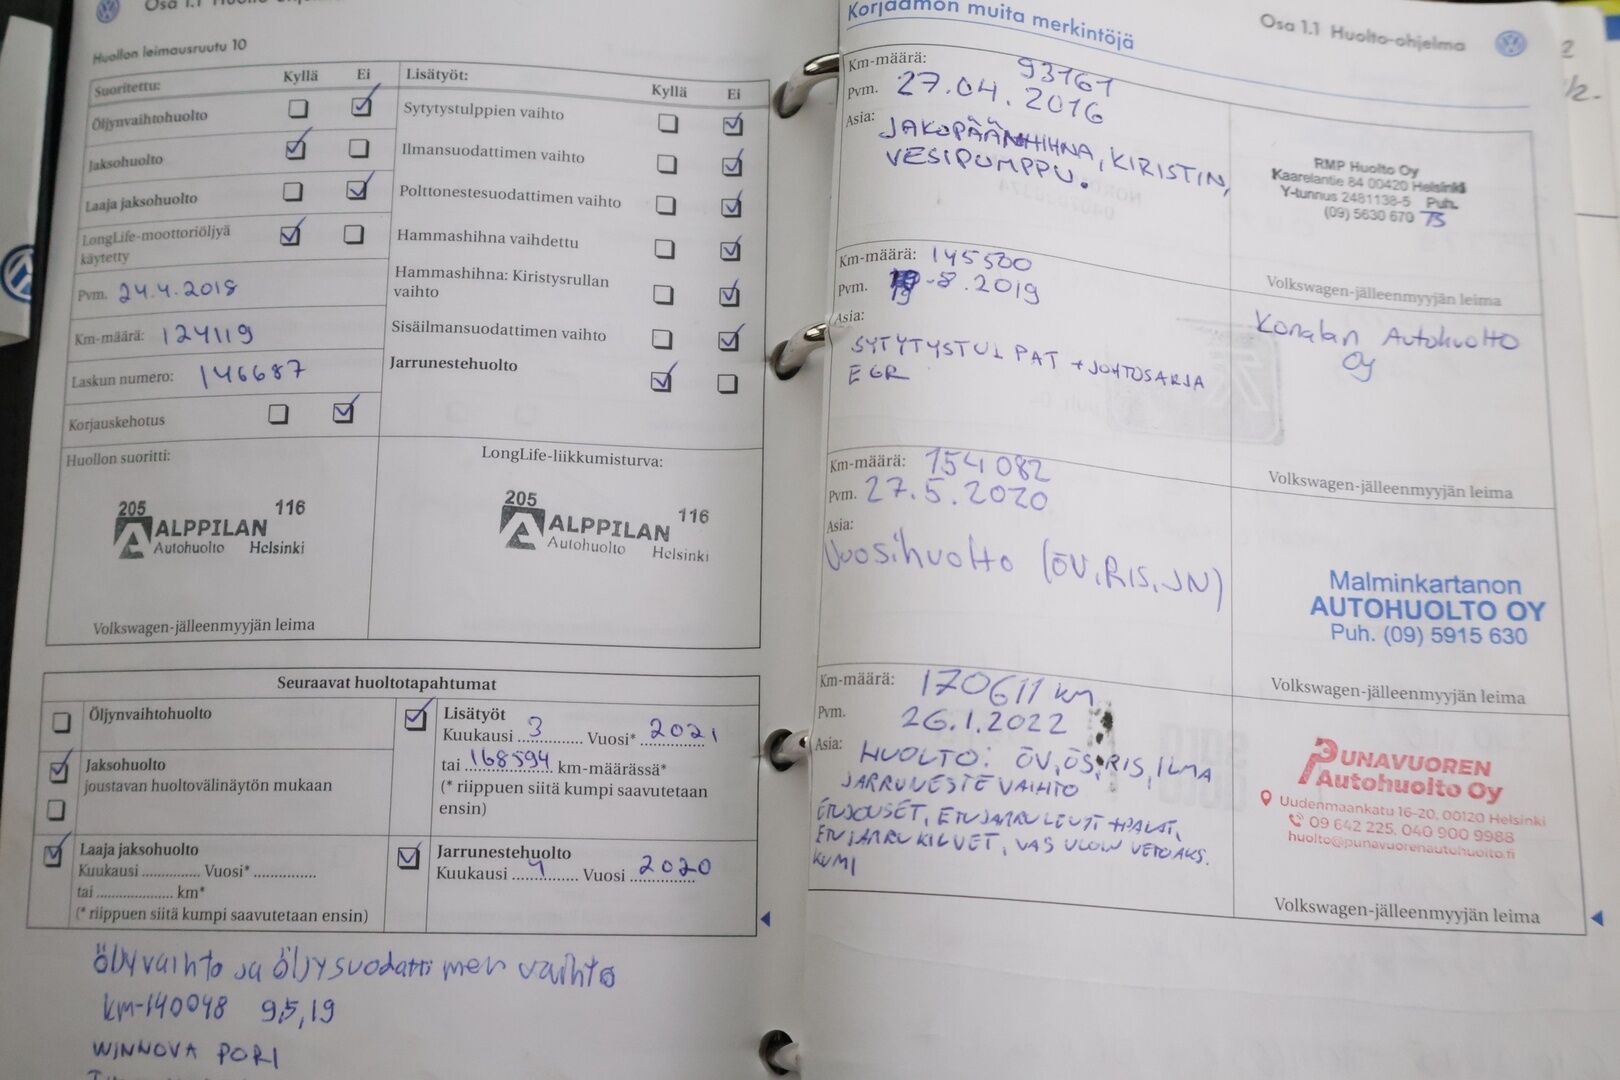 Osa 1.1
Huollon leimausruutu 10
Suoritettu: Kyllä Ei
Öljynvaihtohuolto
Jaksohuolto
Laaja jaksohuolto
LongLife-moottoriöljyä
käytetty
Pvm. 24.4.2018
Km-määrä: 124119
Laskun numero: 146687
Korjauskehotus
Lisätyöt: Kyllä Ei
Sytytystulppien vaihto
Ilmansuodattimen vaihto
Polttonestesuodattimen vaihto
Hammashihna vaihdettu
Hammashihna: Kiristysrullan
vaihto
Sisäilmansuodattimen vaihto
Jarrunestehuolto
Huollon suoritti:
205 116
ALPPILAN
Autohuolto Helsinki
Volkswagen-jälleenmyyjän leima
LongLife-liikkumisturva:
205 116
ALPPILAN
Autohuolto Helsinki
Seuraavat huoltotapahtumat
Öljynvaihtohuolto
Jaksohuolto
joustavan huoltovälinäytön mukaan
Laaja jaksohuolto
Kuukausi .............. Vuosi* ...............
tai ..................... km*
(* riippuen siitä kumpi saavutetaan ensin)
Lisätyöt
Kuukausi 3 Vuosi* 2021
tai 168594 km-määrässä*
(* riippuen siitä kumpi saavutetaan
ensin)
Jarrunestehuolto
Kuukausi 4 Vuosi 2020
öljyvaihto ja öljysuodattimen vaihto
km-140048 9,5,19
WINNOVA PORI
Korjaamon muita merkintöjä
Osa 1.1 Huolto-ohjelma
Km-määrä: 93161
Pvm. 27.04.2016
Asia: JAKOPÄÄNHIHNA, KIRISTIN,
VESIPUMPPU.
RMP Huolto Oy
Kaarelantie 84 00420 Helsinki
Y-tunnus 2481138-5 Puh.
(09) 5630 670 TS
Volkswagen-jälleenmyyjän leima
Km-määrä: 145500
Pvm. 19-8.2019
Asia:
SYTYTYSTULPAT + JOHTOSARJA
EGR
Konalan Autohuolto
Oy
Volkswagen-jälleenmyyjän leima
Km-määrä: 154082
Pvm. 27.5.2020
Asia:
Vuosihuolto (ÖV, RIS, JN)
Malminkartanon
AUTOHUOLTO OY
Puh. (09) 5915 630
Volkswagen-jälleenmyyjän leima
Km-määrä: 170611 km
Pvm. 26.1.2022
Asia: HUOLTO: ÖV, ÖS, RIS, ILMA
JARRUNESTE VAIHTO
ETUJOUSET, ETUJARRULEVYT + PALAT,
ETUJARRUKILVET, VAS ULOIN VETOAKS.
KUMI
PUNAVUOREN
Autohuolto Oy
Uudenmaankatu 16-20, 00120 Helsinki
09 642 225, 040 900 9988
huolto@punavuorenautohuolto.fi
Volkswagen-jälleenmyyjän leima